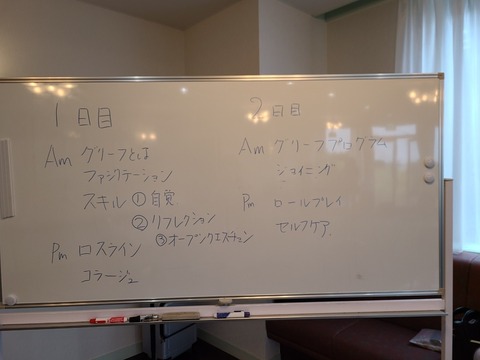 1日目
Am グリーフとは
ファシリテーション
スキル ①自覚
②リフレクション
③オープンクエスチョン
Pm ロスライン
コラージュ
2日目
Am グリーフプログラム
シャイニング
Pm ロールプレイ
セルフケア